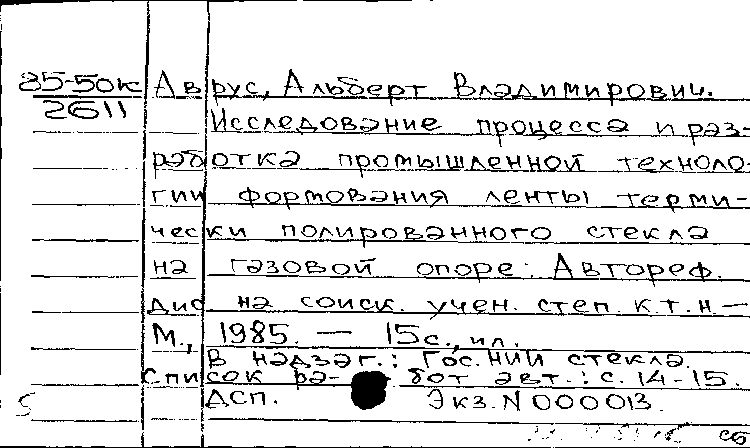 85-50к Аврус, Альберт Владимирович.
2611
Исследование процесса и раз-
работка промышленной техноло-
гии формования ленты терми-
чески полированного стекла
на газовой опоре: Автореф.
дис на соиск. учен. степ. к.т.н. —
М., 1985. — 15с., ил.
В надзаг.: Гос. НИИ стекла.
Список ра- бот авт.: с. 14-15.
ДСП. Экз. N 000013.